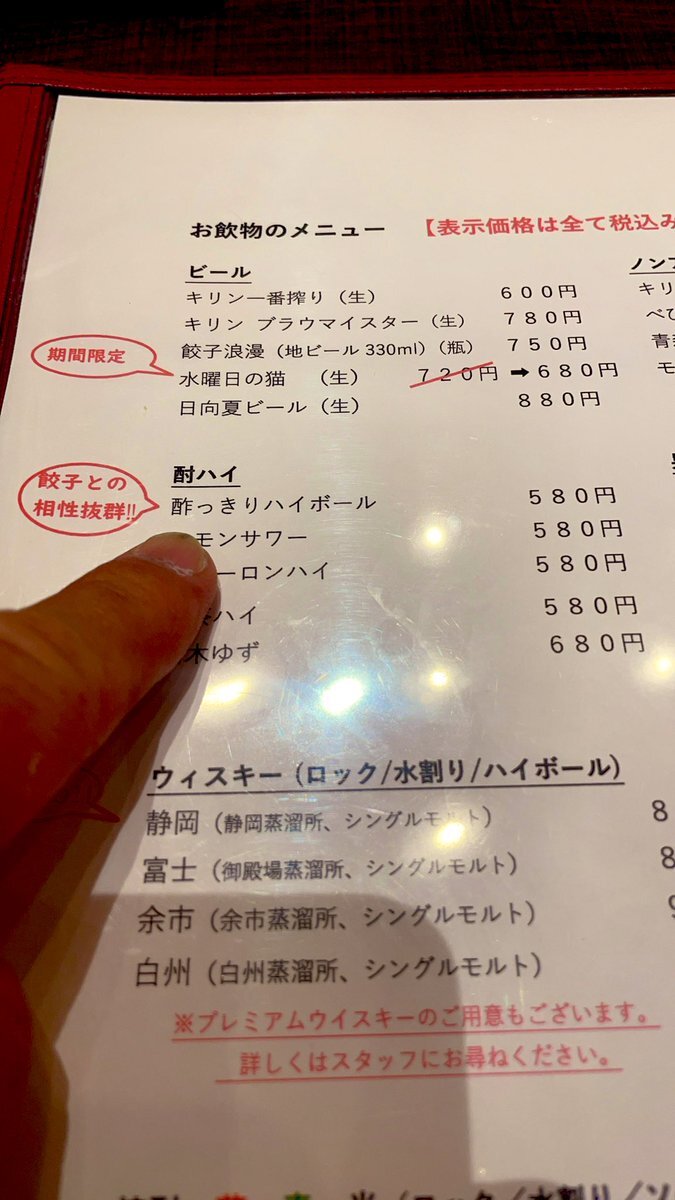 お飲物のメニュー 【表示価格は全て税込み
ビール
キリン一番搾り（生） 600円
キリン ブラウマイスター（生） 780円
餃子浪漫（地ビール330ml）（瓶） 750円
期間限定
水曜日の猫 （生） 720円 ➡680円
日向夏ビール（生） 880円
酎ハイ
餃子との
相性抜群!!
酢っきりハイボール 580円
モンサワー 580円
ーロンハイ 580円
ハイ 580円
木ゆず 680円
ウィスキー（ロック/水割り/ハイボール）
静岡（静岡蒸溜所、シングルモルト） 8
富士（御殿場蒸溜所、シングルモルト） 8
余市（余市蒸溜所、シングルモルト） 9
白州（白州蒸溜所、シングルモルト）
※プレミアムウイスキーのご用意もございます。
詳しくはスタッフにお尋ねください。
ノンフ
キリ
べひ
青
モ